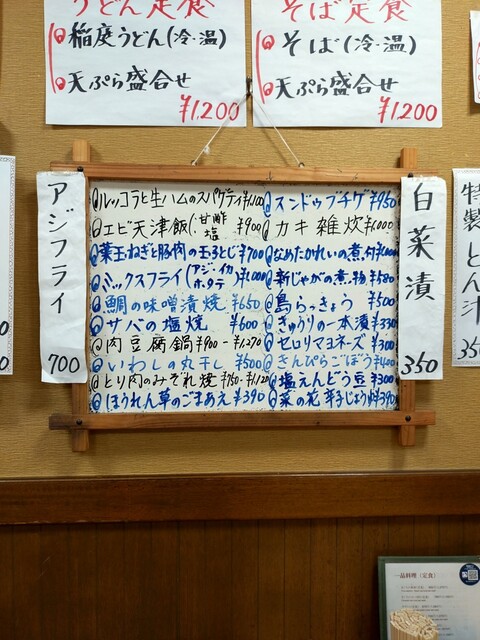 うどん定食
稲庭うどん(冷・温)
天ぷら盛合せ
¥1,200
そば定食
そば(冷・温)
天ぷら盛合せ
¥1,200
アジフライ
700
ルッコラと生ハムのスパゲティ ¥1,100
エビ天津飯(・甘酢 塩 ¥900
葉玉ねぎと豚肉の玉子とじ ¥700
ミックスフライ(アジ・イカ ホタテ) ¥1,000
鯛の味噌漬焼 ¥650
サバの塩焼 ¥600
肉豆腐鍋 ¥900-¥1,270
いわしの丸干し ¥500
とり肉のみぞれ焼 ¥750-¥1,120
ほうれん草のごまあえ ¥390
スンドゥブチゲ ¥950
カキ雑炊 ¥1,000
なめたかれいの煮付 ¥1,000
新じゃがの煮物 ¥580
島らっきょう ¥500
きゅうりの一本漬 ¥330
セロリマヨネーズ ¥300
きんぴらごぼう ¥400
塩えんどう豆 ¥300
菜の花辛子じょうゆ ¥390
白菜漬
350
特製とん汁
350
一品料理「定食」